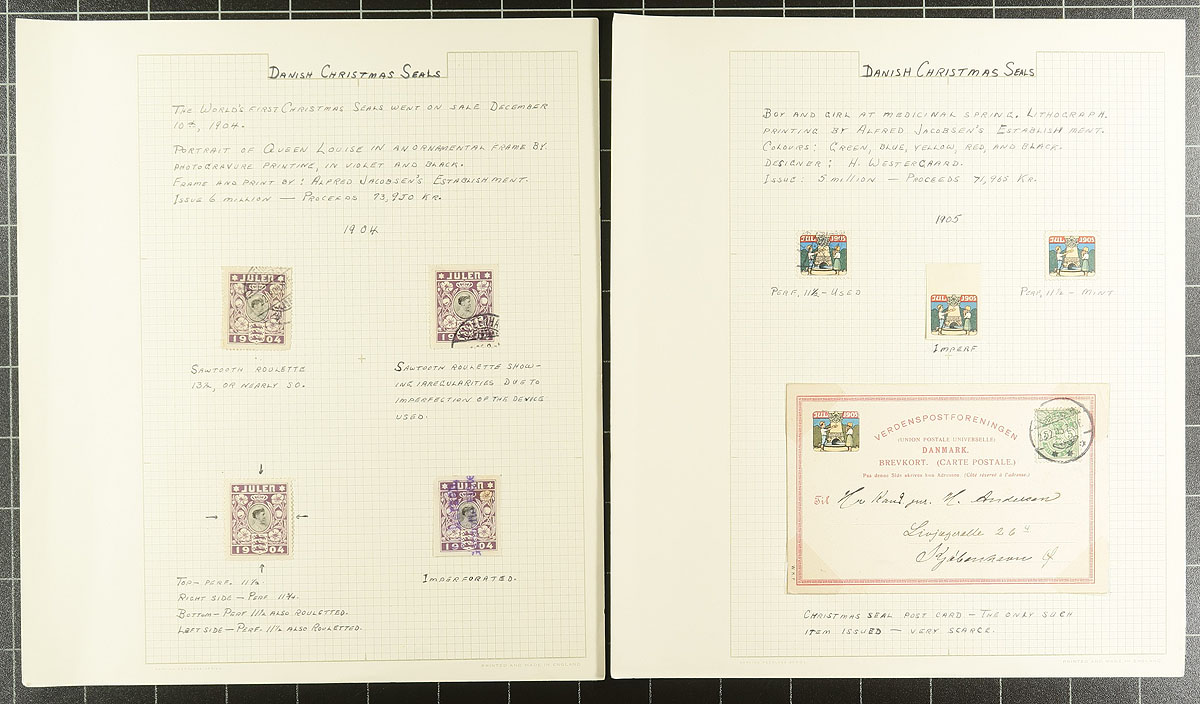 DANISH CHRISTMAS SEALS
THE WORLD'S FIRST CHRISTMAS SEALS WENT ON SALE DECEMBER
10TH, 1904.
PORTRAIT OF QUEEN LOUISE IN AN ORNAMENTAL FRAME BY
PHOTOGRAVURE PRINTING, IN VIOLET AND BLACK.
FRAME AND PRINT BY: ALFRED JACOBSEN'S ESTABLISHMENT.
ISSUE 6 MILLION — PROCEEDS 73,950 KR.
1904
JULEN
1904
JULEN
19
SAWTOOTH ROULETTE
13½, OR NEARLY SO.
SAWTOOTH ROULETTE SHOW-
ING IRREGULARITIES DUE TO
IMPERFECTION OF THE DEVICE
USED.
JULEN
1904
JULEN
1904
TOP — PERF. 11½
RIGHT SIDE — PERF. 11½.
BOTTOM — PERF 11½ ALSO ROULETTED.
LEFT SIDE — PERF. 11½ ALSO ROULETTED.
IMPERFORATED.
PRINTED AND MADE IN ENGLAND
DANISH CHRISTMAS SEALS
BOY AND GIRL AT MEDICINAL SPRING. LITHOGRAPH.
PRINTING BY ALFRED JACOBSEN'S ESTABLISHMENT.
COLOURS: GREEN, BLUE, YELLOW, RED, AND BLACK.
DESIGNER: H. WESTERGAARD.
ISSUE: 5 MILLION — PROCEEDS 71,965 KR.
1905
JUL 1905
JUL 1905
PERF, 11½ — USED
PERF, 11½ — MINT
JUL 1905
IMPERF
JUL 1905
VERDENSPOSTFORENINGEN
(UNION POSTALE UNIVERSELLE)
DANMARK.
BREVKORT. (CARTE POSTALE.)
Paa denne Side skrives kun Adressen. (Côté réservé à l'adresse.)
Til Hr Kand. jur. H. Andersen
Livjægeralle 26
Kjøbenhavn Ø
CHRISTMAS SEAL POST CARD — THE ONLY SUCH
ITEM ISSUED — VERY SCARCE.
PRINTED AND MADE IN ENGLAND